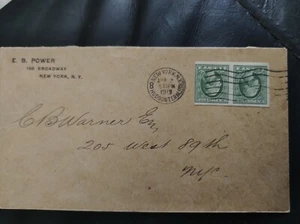 E. B. POWER
BROADWAY
NEW YORK, N. Y.
NEW YORK, N.Y.
1913
C B Warner Esq,
205 West 89th
NYC